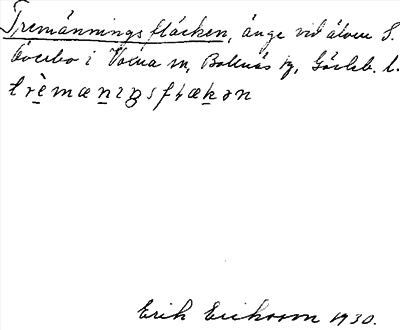 Tremänningsfläcken, änge vid älven S.
Öoerbo i Voxna sn, Bollnäs tg, Gävleb. l.
trèmænıŋsflækən
Erik Eriksson 1930.